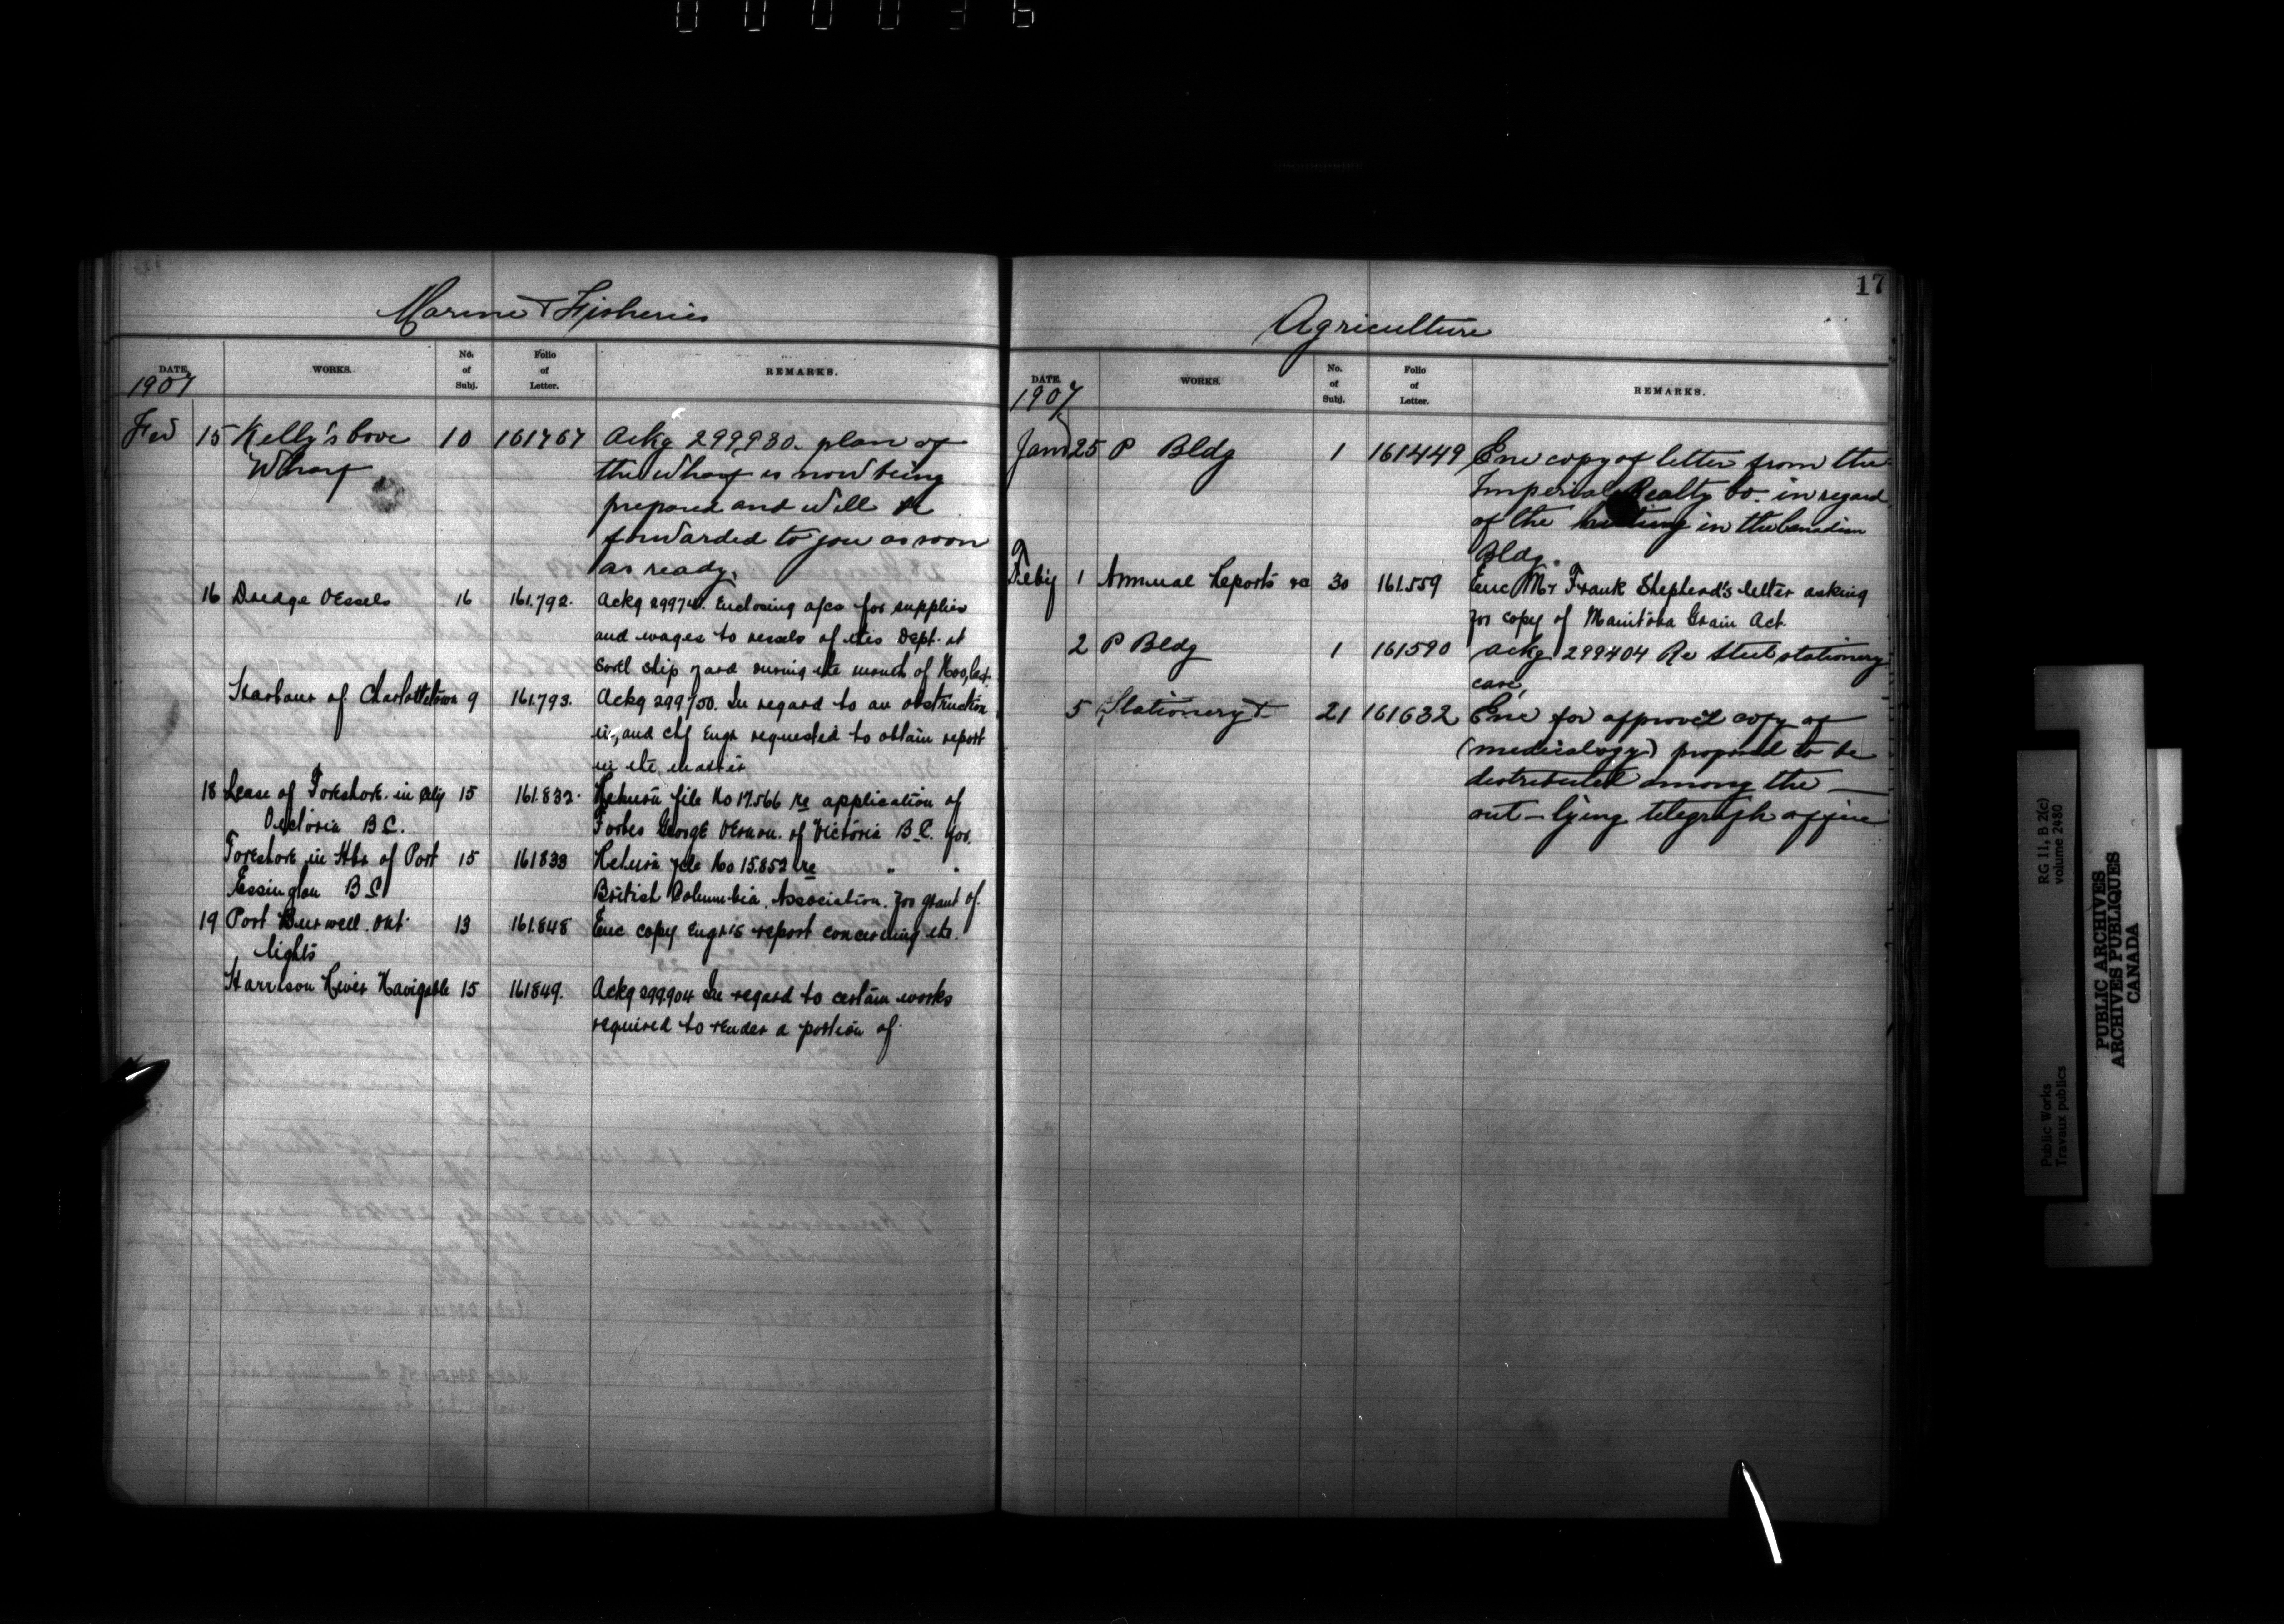 000036
Marine & Fisheries
DATE. WORKS. No. of Subj. Folio of Letter. REMARKS.
1907
Feb 15 Kelly's Cove 10 161767 Ackg 299930. plan of
Wharf the wharf is now being
prepared and will be
forwarded to you as soon
as ready.
16 Dredge Vessels 16 161.792. Ackg Enclosing a/cs for supplies
and wages to vessels of this Dept. at
Sorel ship yard during the month of Nov, last.
Harbour of Charlottetown 9 161.793. Ackg 299750. In regard to an obstruction
in, and chf Engr requested to obtain report
in the matter
18 Lease of Foreshore in City 15 161.832. Return file No 17.566 re application of
Victoria B.C. Forbes George Vernon. of Victoria B.C. for.
Foreshore in Hbr of Port 15 161833 Return file No 15.852 re " "
Essington B C British Columbia Association. for grant of.
19 Port Burwell. Ont. 13 161.848 Enc copy Engr's report concerning the.
lights
Harrison River Navigable 15 161849. Ackg 299904 In regard to certain works
required to render a portion of.
17
Agriculture
DATE. WORKS. No. of Subj. Folio of Letter. REMARKS.
1907
Jany 25 P Bldg 1 161449 Enc copy of letter from the
Imperial Realty Co. in regard
of the heating in the Canadian
Bldg.
Feby 1 Annual Reports re 30 161.559 Enc Mr Frank Shepherd's letter asking
for copy of Manitoba Grain Act.
2 P Bldg 1 161590 Ackg 299404 Re Steel stationery
case,
5 Stationery 21 161632 Enc for approval copy of
(medicalogy) proposed to be
distributed among the
out-lying telegraph office
Public Works
Travaux publics
RG 11, B 2(c)
volume 2480
PUBLIC ARCHIVES
ARCHIVES PUBLIQUES
CANADA